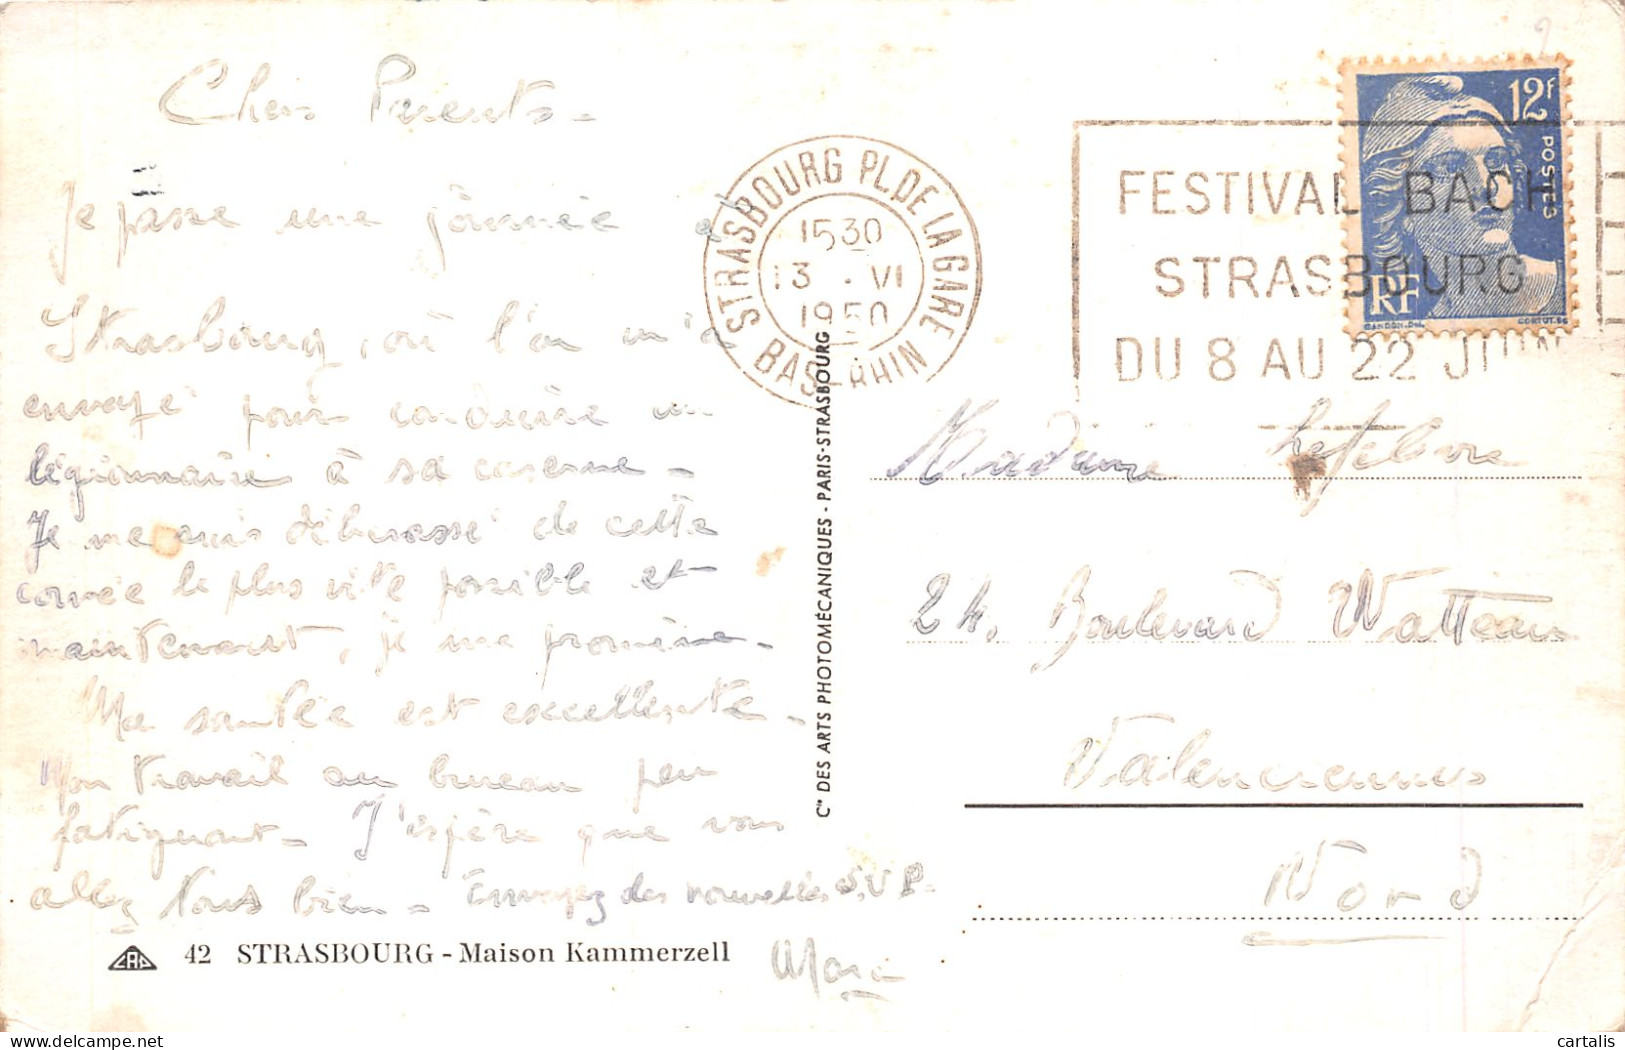 Chers Parents -
Je passe une journée à
Strasbourg, où l'on m'a
envoyé pour conduire un
légionnaire à sa caserne -
Je me suis débarassé de cette
corvée le plus vite possible et
maintenant, je me promène -
Ma santée est excellente -
Mon travail au bureau peu
fatiguant - J'espère que vous
allez tous bien - Envoyez des nouvelles S.V.P.
CAP 42 STRASBOURG - Maison Kammerzell
Cie DES ARTS PHOTOMÉCANIQUES - PARIS-STRASBOURG
STRASBOURG PL. DE LA GARE
BAS-RHIN
1530
13 . VI
1950
FESTIVAL BACH
STRASBOURG
DU 8 AU 22 JUIN
12F
POSTES
RF
GANDON.DEL.
CORTOT.SC
Madame Lefebvre
24, Boulevard Watteau
Valenciennes
Nord
cartalis